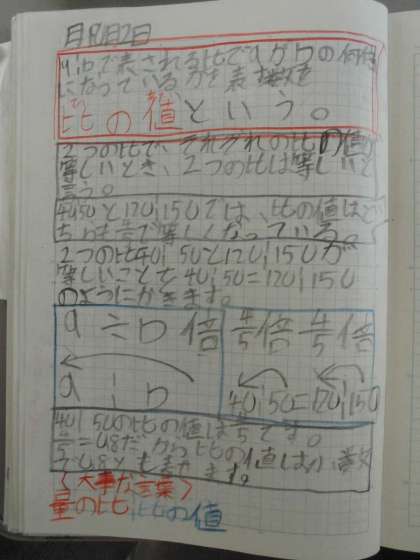 a:bで表される比でaがbの何倍
になっているかを表す数を
比の値という。
2つの比で、それぞれの比の値が
等しいとき、2つの比は等しいと
言う。
40:50と120:150では、比の値はど
ちらも4/5で等しくなっている。
2つの比40:50と120:150が
等しいことを40:50=120:150
のようにかきます。
a÷b倍 4/5倍 4/5倍
a:b 40:50=120:150
40:50の比の値は4/5です。
4/5=0.8だから比の値は小数
で0.8とも表
ます。
<大事な言葉>
量の比 比の値